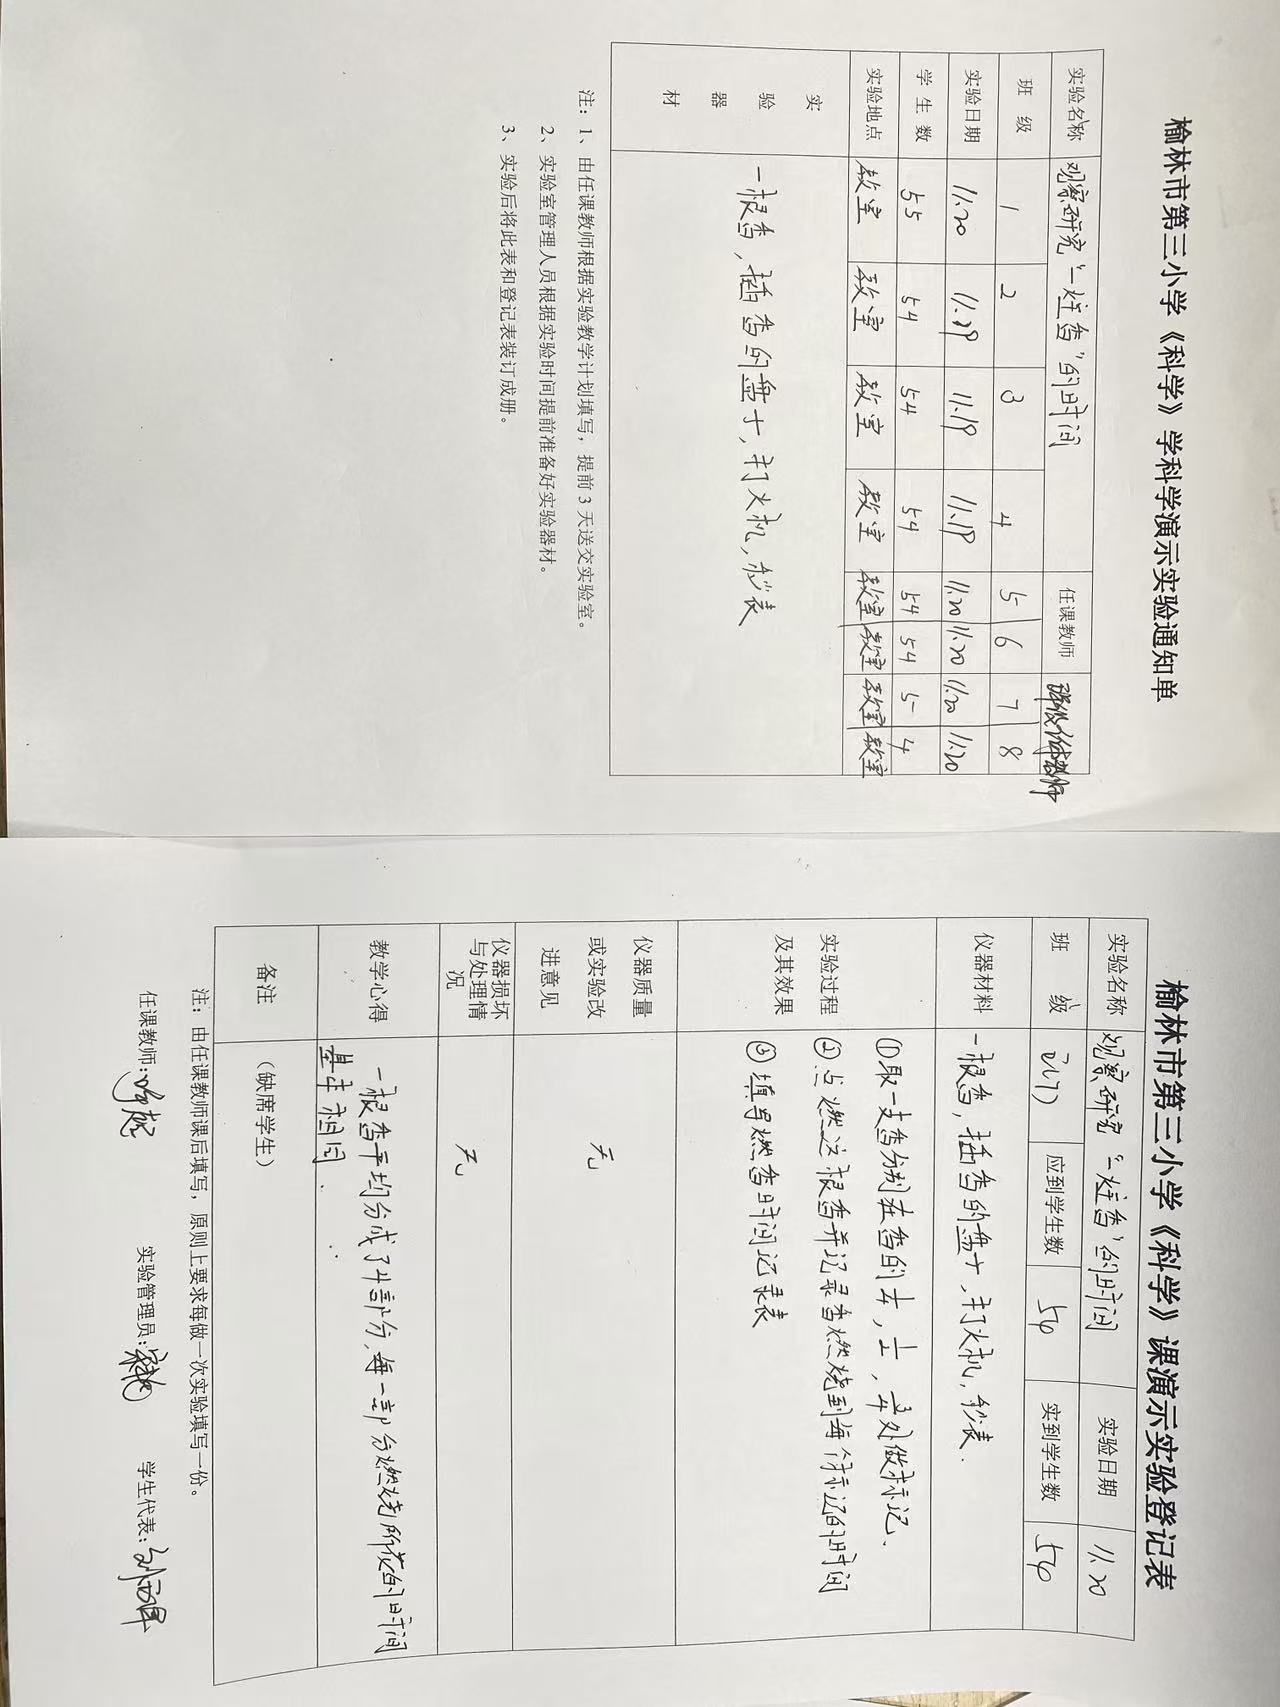 榆林市第三小学《科学》学科学演示实验通知单
实验名称 观察研究“一炷香”的时间 任课教师
班 级 1 2 3 4 5 6 7 8
实验日期 11.20 11.19 11.19 11.19 11.20 11.20 11.20 11.20
学 生 数 55 54 54 54 54 54 5 4
实验地点 教室 教室 教室 教室 教室 教室 教室 教室
实验器材 一根香，插香的盘子，打火机，秒表
注：1、由任课教师根据实验教学计划填写，提前 3 天送交实验室。
2、实验室管理人员根据实验时间提前准备好实验器材。
3、实验后将此表和登记表装订成册。
榆林市第三小学《科学》课演示实验登记表
实验名称 观察研究“一炷香”的时间 实验日期 11.20
班 级 应到学生数 54 实到学生数 54
仪器材料 一根香，插香的盘子，打火机，秒表.
实验过程及其效果 ①取一支香分别在香的¼，½，¾处做标记、
②点燃这根香并记录香燃烧到每个标记的时间
③填写燃香时间记录表
仪器质量或实验改进意见 无
仪器损坏与处理情况 无
教学心得 一根香平均分成了4部分，每一部分燃烧所花的时间
基本相同.
备注 （缺席学生）
注：由任课教师课后填写，原则上要求每做一次实验填写一份。
任课教师： 实验管理员： 学生代表：